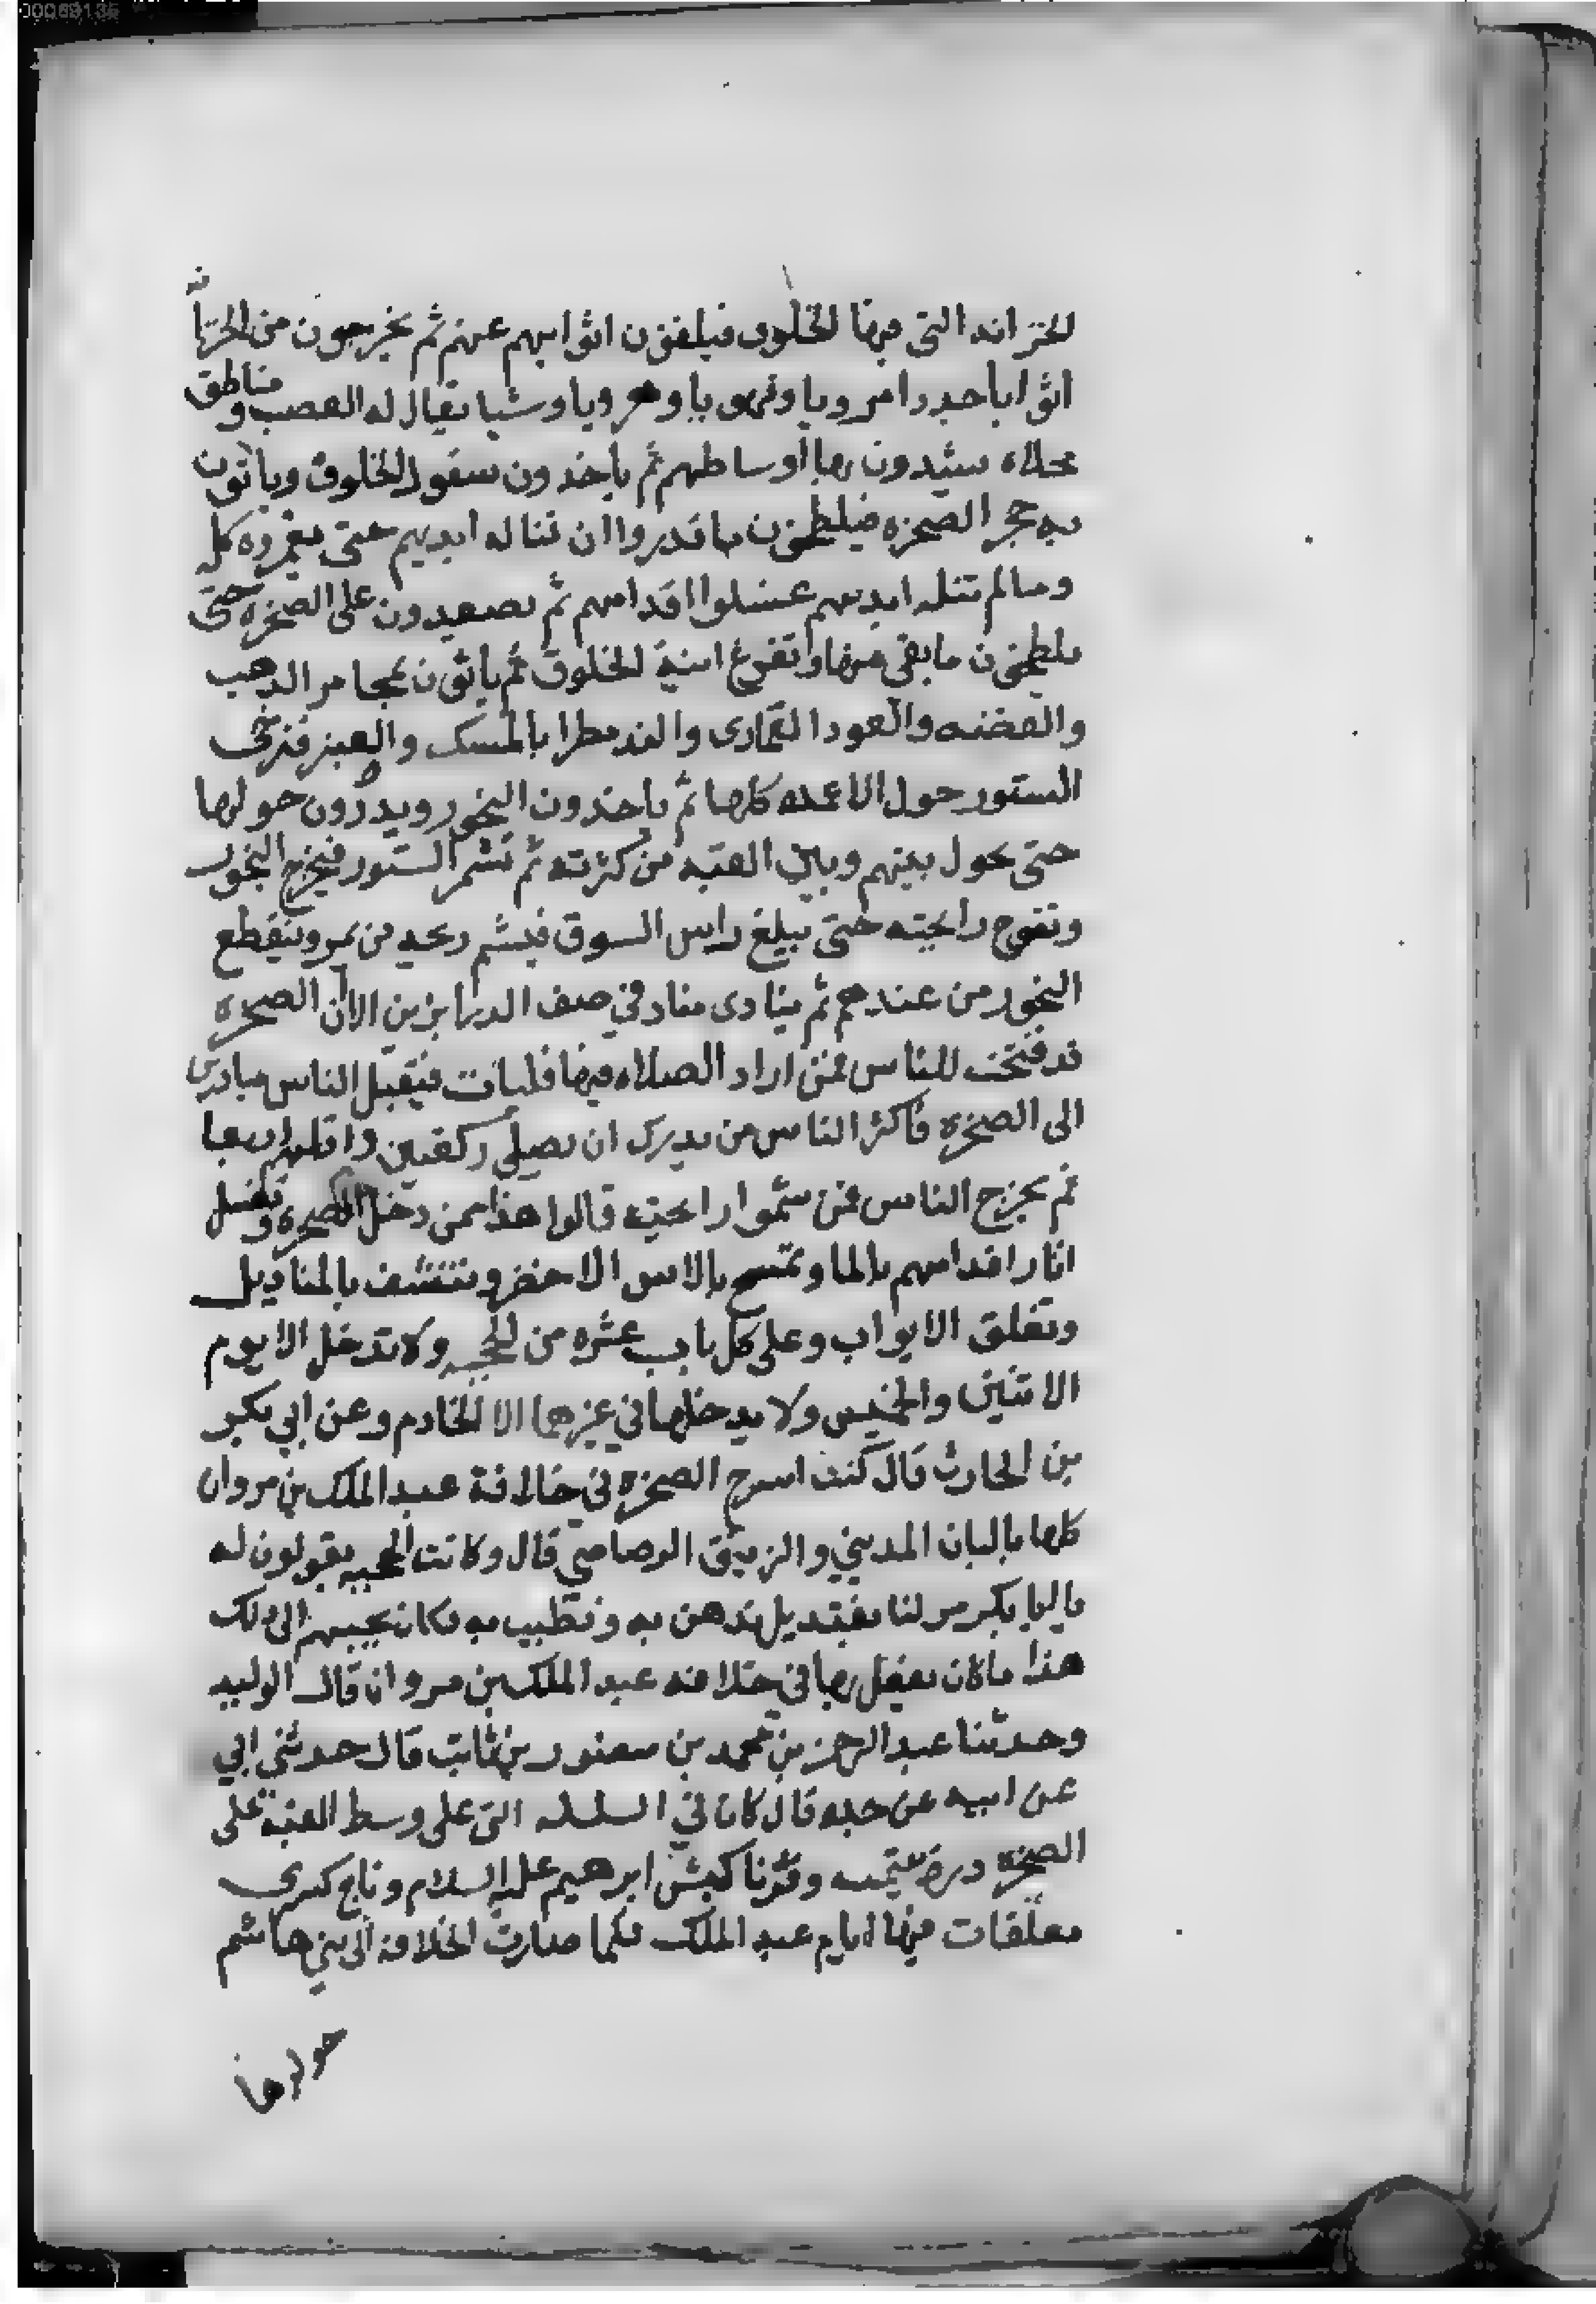 الخزانه التي فيها الخلوق فيلقون اثوابهم عنهم ثم يخرجون من الخزانه
اثوابا جددا مرويا وقوهيا وهرويا وشيا يقال له العصب ومناطق
محلاه يشدون بها اوساطهم ثم ياخذون سفول الخلوق وياتون
به حجر الصخره فيلطخون ما قدروا ان تناله ايديهم حتى يغمروه كله
وما لم تنله ايديهم غسلوا اقدامهم ثم يصعدون على الصخره حتى
يلطخون ما بقي منها وتفرغ انية الخلوق ثم ياتون بمجامر الذهب
والفضه والعود القماري والند مطرا بالمسك والعنبر فترخى
الستور حول الاعمده كلها ثم ياخذون البخور ويدورون حولها
حتى يحول بينهم وبين القبه من كثرته ثم تشمر الستور فيخرج البخور
وتفوح رايحته حتى يبلغ راس السوق فيشم ريحه من يمر وينقطع
البخور من عندهم ثم ينادي مناد في صف الدرابزين الا ان الصخره
قد فتحت للناس فمن اراد الصلاه فيها فليات فيقبل الناس مبادرين
الى الصخره فاكثر الناس من يدرك ان يصلي ركعتين واقلهم اربعا
ثم يخرج الناس فمن شموا رايحته قالوا هذا ممن دخل الصخره وتغسل
اثار اقدامهم بالما وتمسح بالاس الاخضر وتنشف بالمناديل
وتغلق الابواب وعلى كل باب عشره من الحجبه ولا تدخل الا يوم
الاثنين والخميس ولا يدخلها في غيرهما الا الخادم وعن ابي بكر
بن الحارث قال كنت اسرج الصخره في خلافة عبد الملك بن مروان
كلها بالبان المديني والزيبق الرصاصي قال وكانت الحجبه يقولون له
يا ابا بكر مر لنا بقنديل ندهن به ونطيب به فكان يجيبهم الى ذلك
هذا ما كان يفعل بها في خلافه عبد الملك بن مروان قال الوليد
وحدثنا عبد الرحمن بن محمد بن منصور بن ثابت قال حدثني ابي
عن ابيه عن جده قال كان في السلسله التي على وسط القبه على
الصخره درة يتيمه وقرنا كبش ابرهيم عليه السلام وتاج كسرى
معلقات فيها ايام عبد الملك فلما صارت الخلافه الى بني هاشم
حولوها